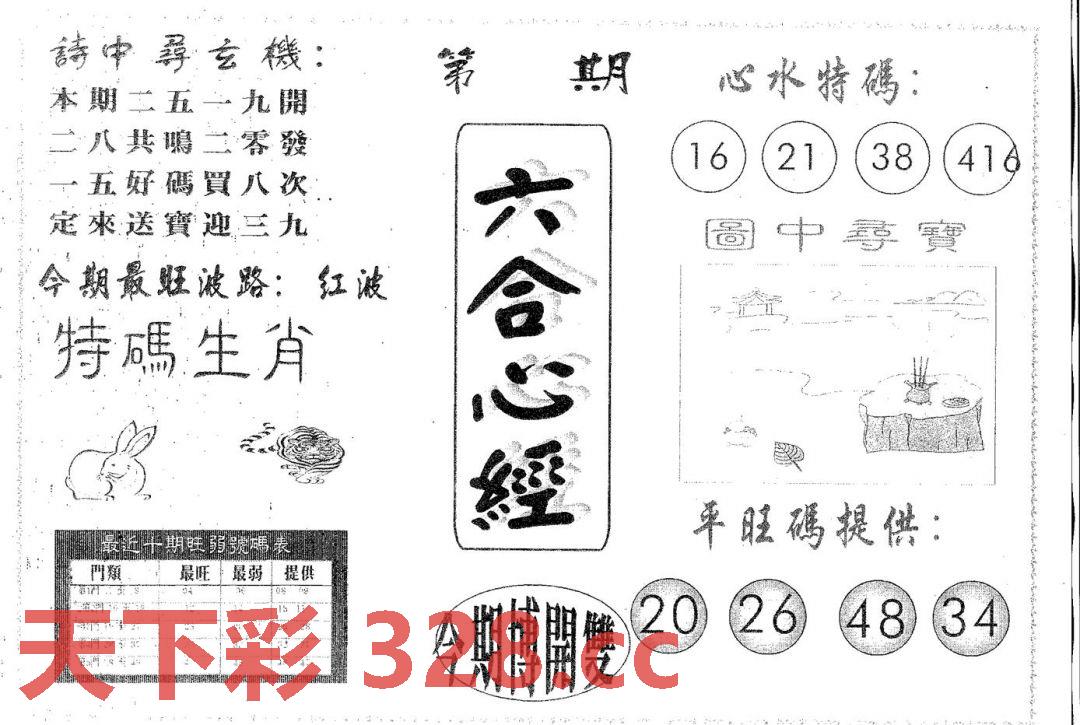 詩中尋玄機：
本期二五一九開
二八共鳴二零發
一五好碼買八次
定來送寶迎三九
今期最旺波路：紅波
特碼生肖
最近十期旺弱號碼表
門類 最旺 最弱 提供
第 期
六合心經
今期特開雙
心水特碼：
16 21 38 416
圖中尋寶
平旺碼提供：
20 26 48 34
天下彩 328.cc